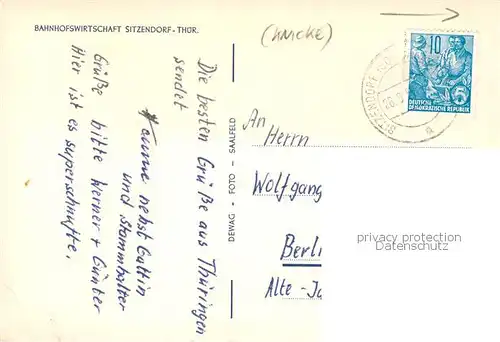 BAHNHOFSWIRTSCHAFT SITZENDORF-THÜR.
(KNICKE)
Die besten Grüße aus Thüringen
sendet
nebst Gattin
und Stammhalter
Grüße bitte Werner + Günter
Hier ist es superschnafte.
DEWAG - FOTO - SAALFELD
10
DEUTSCHE
DEMOKRATISCHE REPUBLIK
5
SITZENDORF
a
An
Herrn
Wolfgang
Berli
Alte-Ja
privacy protection
Datenschutz